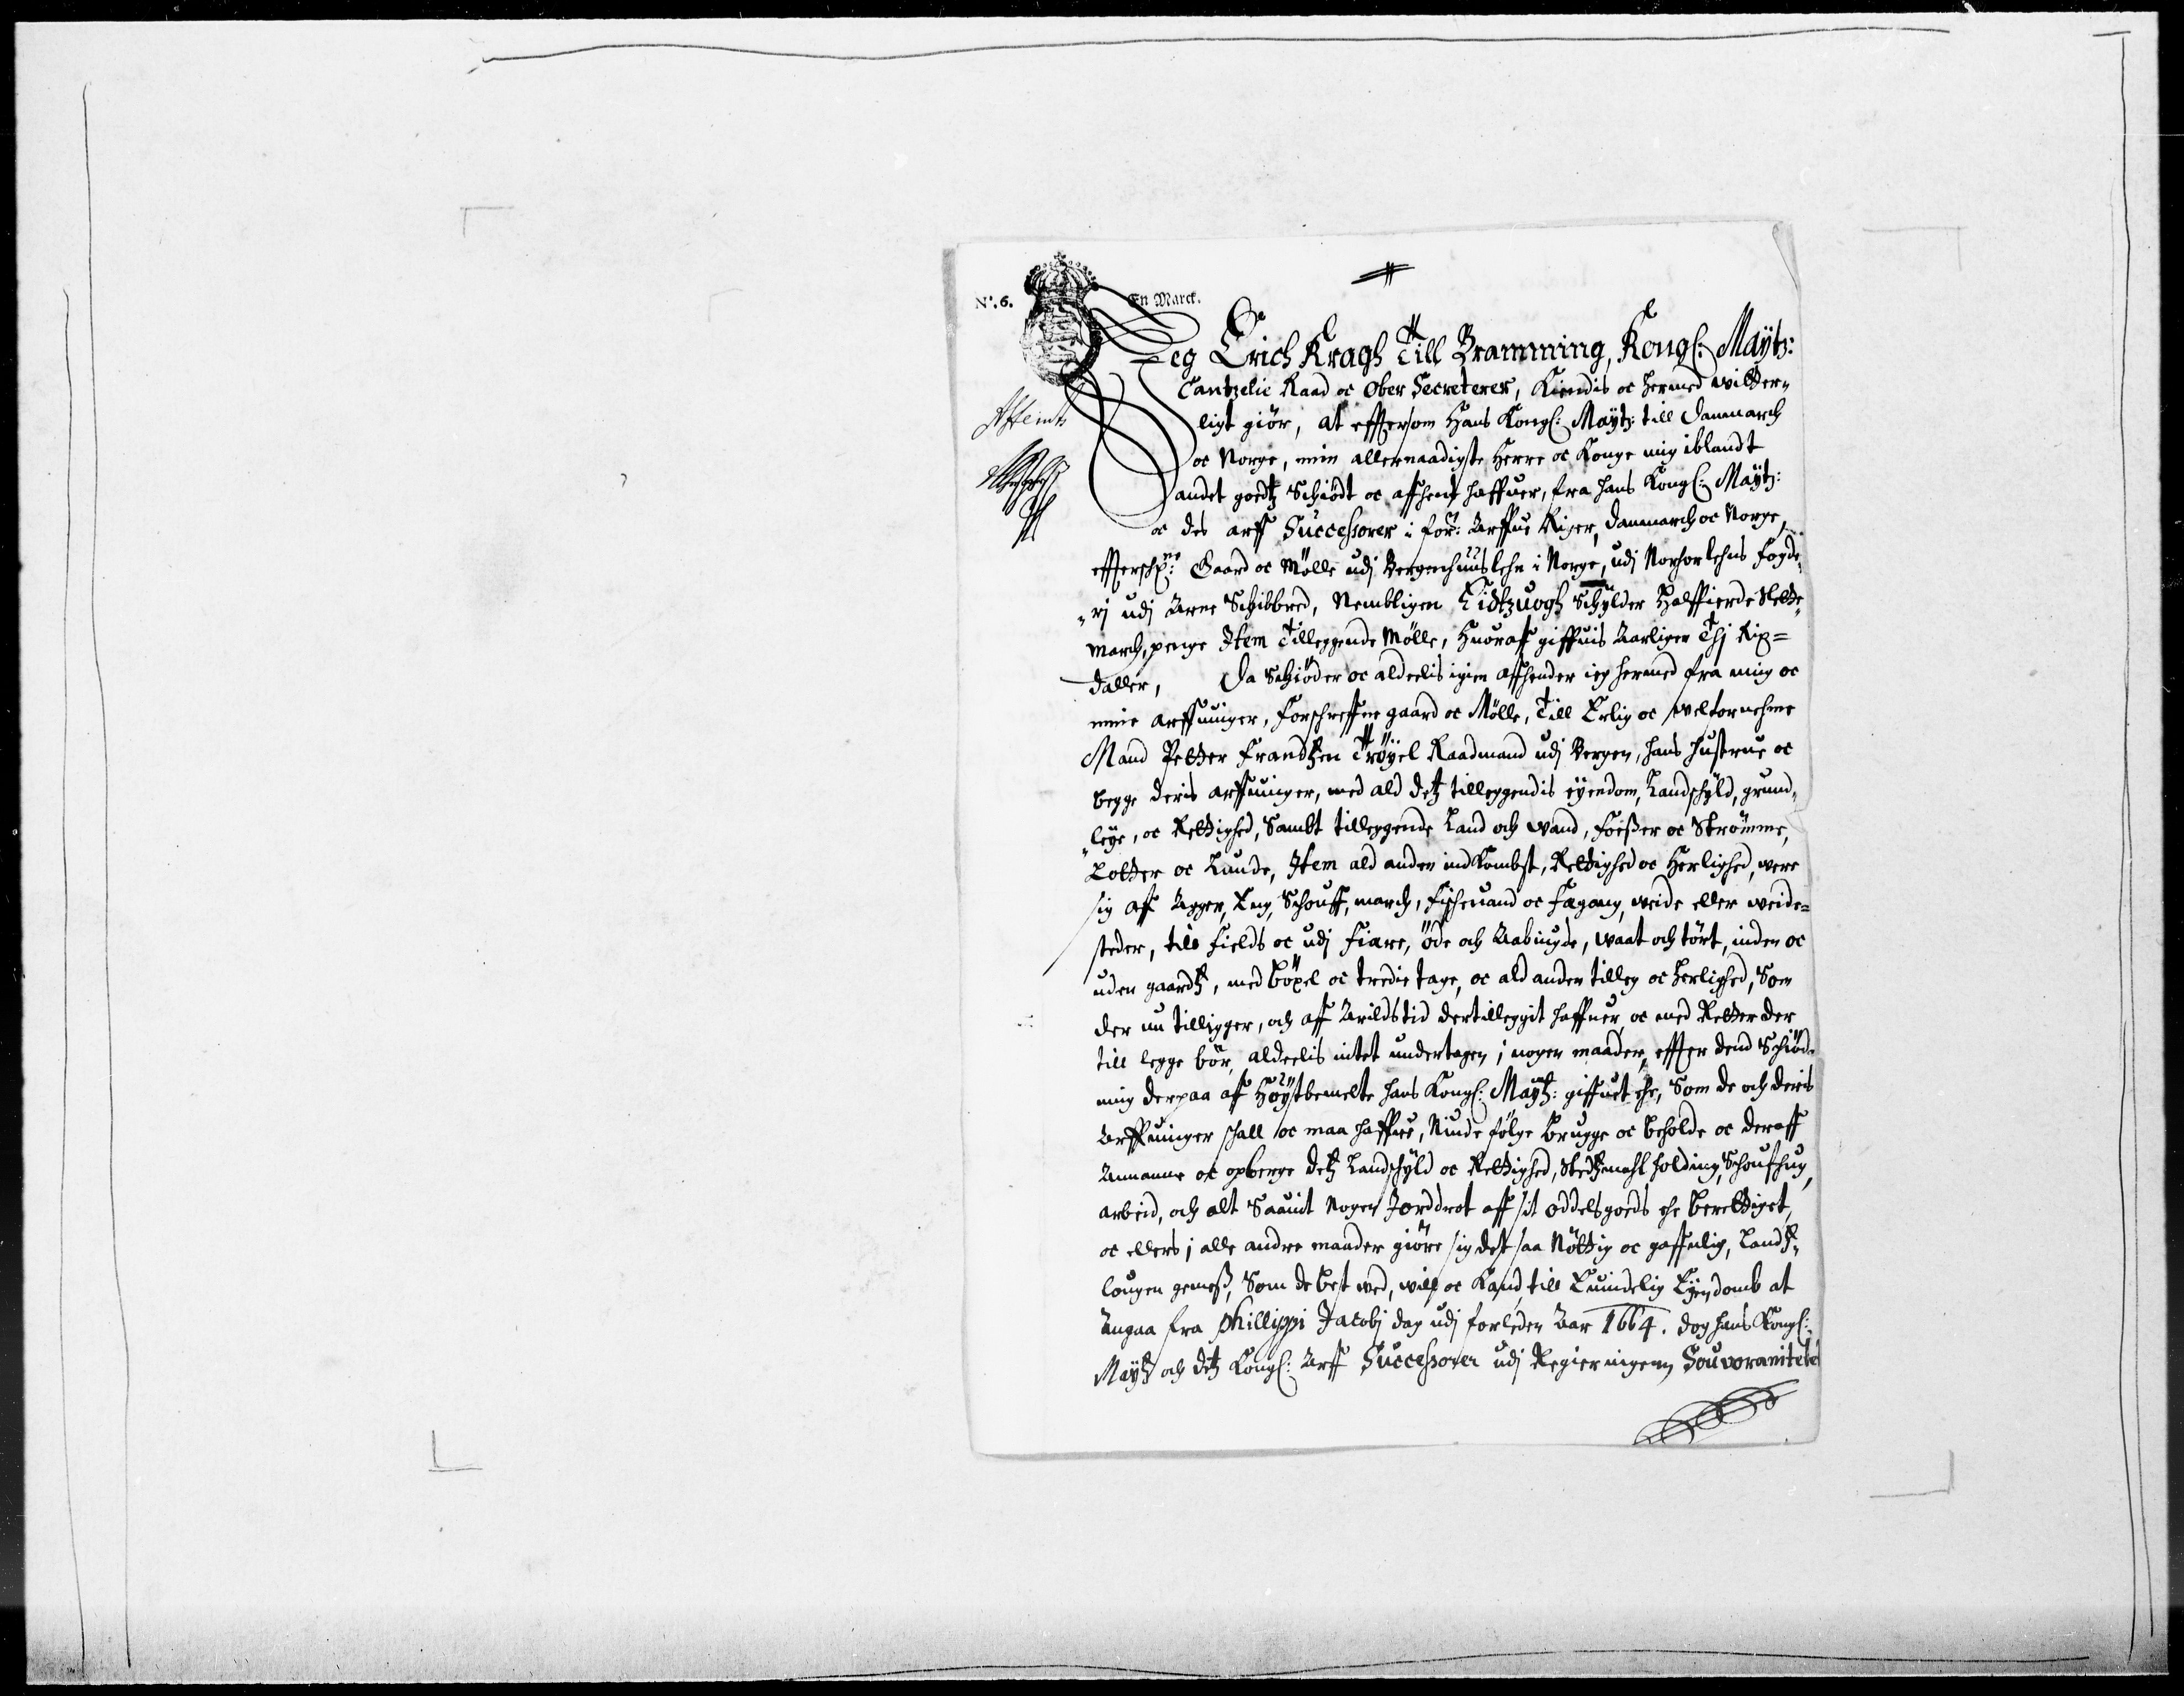 N<sup>o</sup>. 6.
En Marck.
Jeg Erich Kragh Till Bramming, Kongl: Maÿtz:
Cantzelie Raad oc Ober Secreterer, Kiendis oc hermed witter-
ligt giör, at efftersom Hans Kongl: Maÿtz: till Danmarch
oc Norge, min allernaadigste Herre oc Konge mig iblandt
andet goedtz Schiödt oc affhent haffuer, fra hans Kongl: Maÿtz:
oc des arff Successorer i for: Arffue Riger, Danmarch oc Norge,
effterschr:ne Gaard oc Mölle udj Bergenhuuslehn i Norge, udj Norhorlehns fogde-
rj udj Arne Schibbred, Nembligen Tidtzuogh Schÿlder Halffierde Slette
march, penge Item Tilleggende Mölle, Huoraff giffuis Aarligen Thj Rix=
daller, Da Schiöder oc aldeelis igien affhender ieg hermed fra mig oc
mine arffuinger, forschreffne gaard oc Mölle, Till Erlig oc welfornehme
Mand Petter Frandtzen Tröÿel Raadmand udj Bergen, hans hustrue oc
begge deris arffuinger, med ald detz tilleggendis eÿendom, Landschÿld, grund-
leÿe, oc Rettighed, Sambt tilleggende Land och wand, foesser oc Strömme,
Lotter oc Lunde, Item ald anden indkombst, Rettighed oc Herlighed, were
sig aff Agger, Eng, Schouff, march, fischevand oc Fægang, weide eller weide=
steder, till fields oc udj fiære, öde och Aabiugde, waat och tört, inden oc
uden gaardtz, med böxel oc tredie tage, oc ald anden tilleg oc herlighed, Som
der nu tilligger, och aff Arildstid dertilleggit haffuer, oc med Rette der
till legge bör, aldeelis intet undertagen, i nogen maader, effter dend Schiöde
mig derpaa aff Höÿstbemelte hans Kongl: Maÿtz: giffuet ehr, Som de och deris
Arffuinger schall oc maa haffue, Niude fölge brugge oc beholde oc deraff
Annamme oc opberge detz Landschÿld oc Rettighed, Stedtzmahl holding, Schoufhug,
arbeid, och alt Saauit Nogen Jorddrot aff sit oddelsgoeds ehr berettiget,
oc ellers i alle andre maader giöre sig det saa Nöttig oc gaffnlig, Landtz-
lougen gemess, Som de best wed, will oc Kand, till Euindelig Eÿendomb at
Angaa fra Phillippi Jacobj dag udj forleden Aar 1664. dog hans Kongl:
Maÿtz och detz Kongl: Arff Successorer udj Regieringenn Souvoranitetet